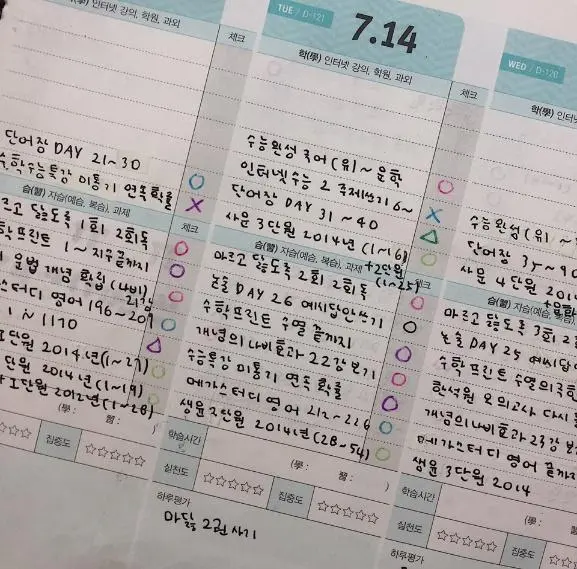 (學) 인터넷 강의, 학원, 과외
체크
단어장 DAY 21~30
수학수능특강 미통기 연속확률
습(習) 자습(예습, 복습), 과제
체크
닳도록 1회 2회독
프린트 1~지수끝까지
문법 개념 확립 (나비)
21강
스터디 영어 196~209
1~1170
단원 2014년(1~27)
단원 2014년(1~19)
단원 2012년(1~28)
(學: 習: )
집중도
TUE / D-121
7.14
학(學) 인터넷 강의, 학원, 과외
체크
수능완성 국어(위)~문학
인터넷수능 2 주제쓰기 6~
단어장 DAY 31~40
사문 3단원 2014년(1~16)
습(習) 자습(예습, 복습), 과제
+2단원
(1~25)
마르고 닳도록 2회 2회독
논술 DAY 26 예시답안쓰기
수학프린트 수열 끝까지
개념의 나비효과 22강 보기
수능특강 미통기 연속확률
메가스터디 영어 212~226
생윤 2단원 2014년(28~54)
학습시간
(學: 習: )
실천도
집중도
하루평가
마닳 2권 사기
WED / D-120
학(學) 인터넷
수능완성(위)~
단어장 35~40
사문 4단원 201
습(習) 자습(예습, 복습)
마르고 닳도록 3회 2
논술 DAY 25 예시답
수학프린트 수열의극한
한석원 모의고사 다시
개념의나비효과 23강 보
메가스터디 영어 끝까지
생윤 3단원 2014
학습시간
(學:
실천도
집중도
하루평가